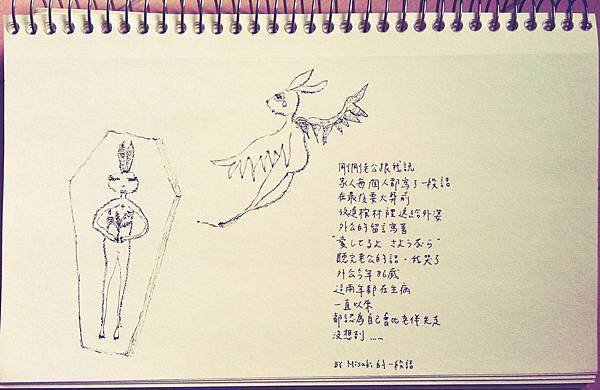 剛剛老公跟我說
家人每個人都寫了一段話
在最後要火葬前
放進棺材裡 送給外婆
外公的留言寫著
"愛してるよ さようなら"
聽完老公的話，我哭了
外公今年86歲
這兩年都在生病
一直以來
都認為自己會比老伴先走
沒想到……
BY Misaki 的一段話